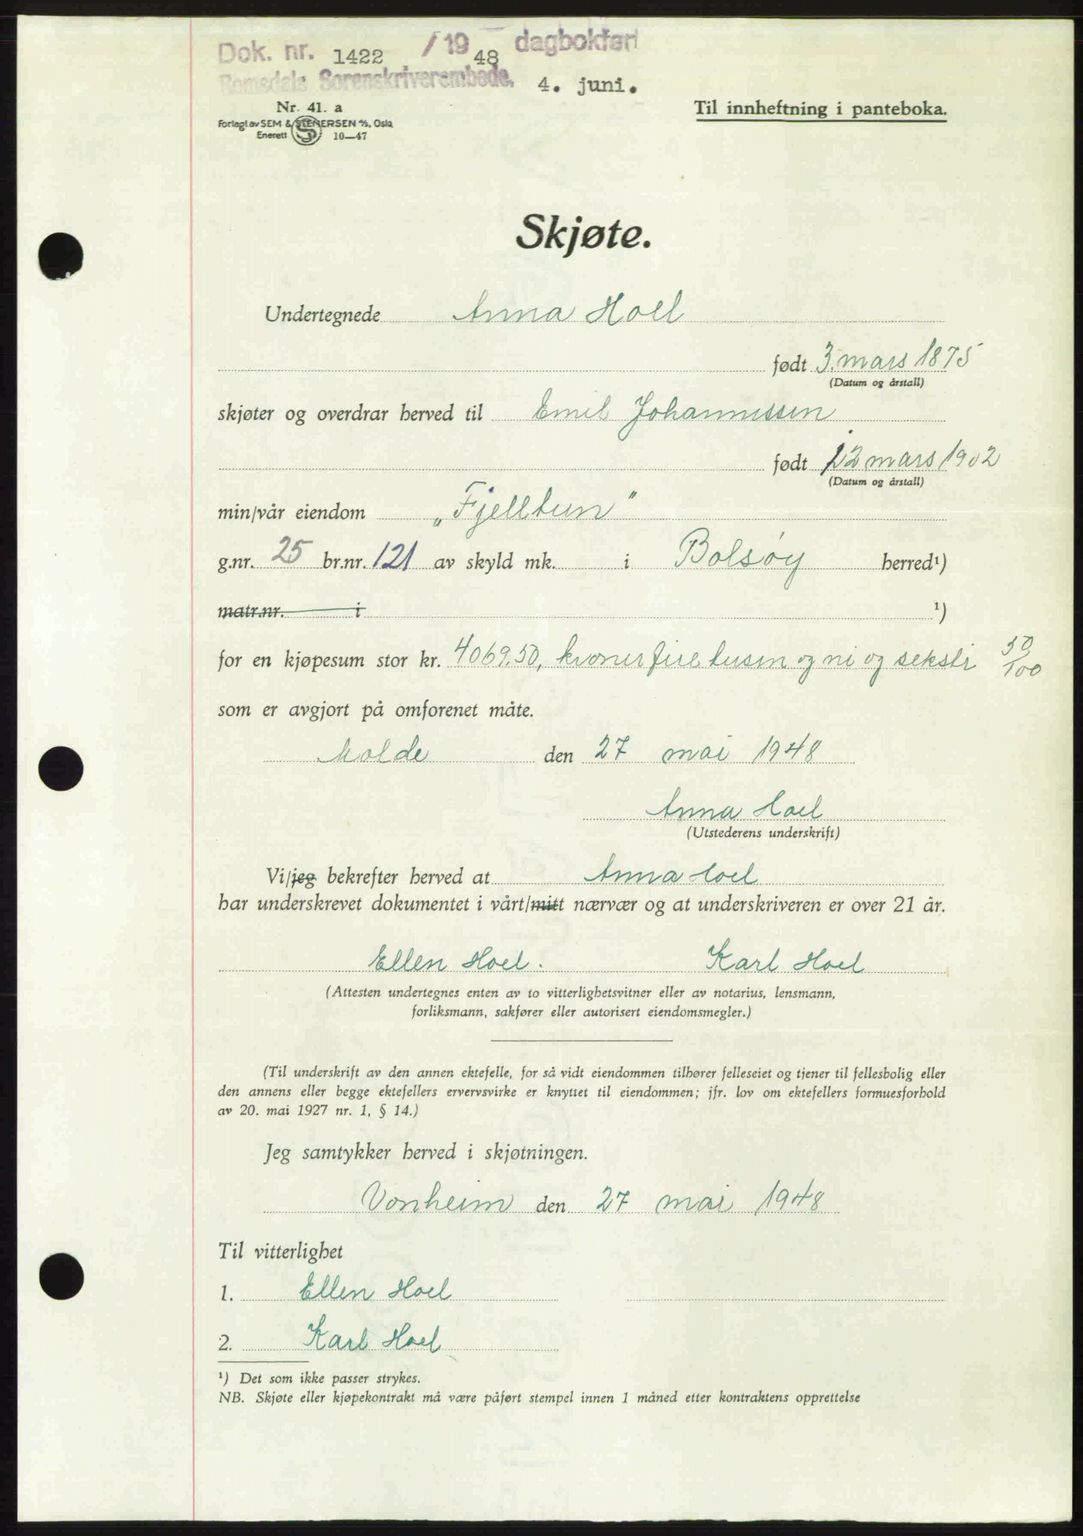 Dok. nr. 1422 /19 48 dagbokført
Romsdals Sorenskriverembede. 4. juni.
Nr. 41. a
Forlagt av SEM & STENERSEN A/S, Oslo
Enerett 10—47
Til innheftning i panteboka.
Skjøte.
Undertegnede Anna Hoel
født 3. mars 1875
(Datum og årstall)
skjøter og overdrar herved til Emil Johannessen
født 12 mars 1902
(Datum og årstall)
min/vår eiendom „Fjelltun"
g.nr. 25 br.nr. 121 av skyld mk. i Bolsøy herred¹)
matr.nr. i ¹)
for en kjøpesum stor kr. 4069.50, kroner fire tusen og ni og seksti 50/100
som er avgjort på omforenet måte.
Molde den 27 mai 1948
Anna Hoel
(Utstederens underskrift)
Vi/jeg bekrefter herved at Anna Hoel
har underskrevet dokumentet i vårt/mitt nærvær og at underskriveren er over 21 år.
Ellen Hoel. Karl Hoel
(Attesten undertegnes enten av to vitterlighetsvitner eller av notarius, lensmann,
forliksmann, sakfører eller autorisert eiendomsmegler.)
(Til underskrift av den annen ektefelle, for så vidt eiendommen tilhører felleseiet og tjener til fellesbolig eller
den annens eller begge ektefellers ervervsvirke er knyttet til eiendommen; jfr. lov om ektefellers formuesforhold
av 20. mai 1927 nr. 1, § 14.)
Jeg samtykker herved i skjøtningen.
Vonheim den 27 mai 1948
Til vitterlighet
1. Ellen Hoel
2. Karl Hoel
¹) Det som ikke passer strykes.
NB. Skjøte eller kjøpekontrakt må være påført stempel innen 1 måned etter kontraktens opprettelse